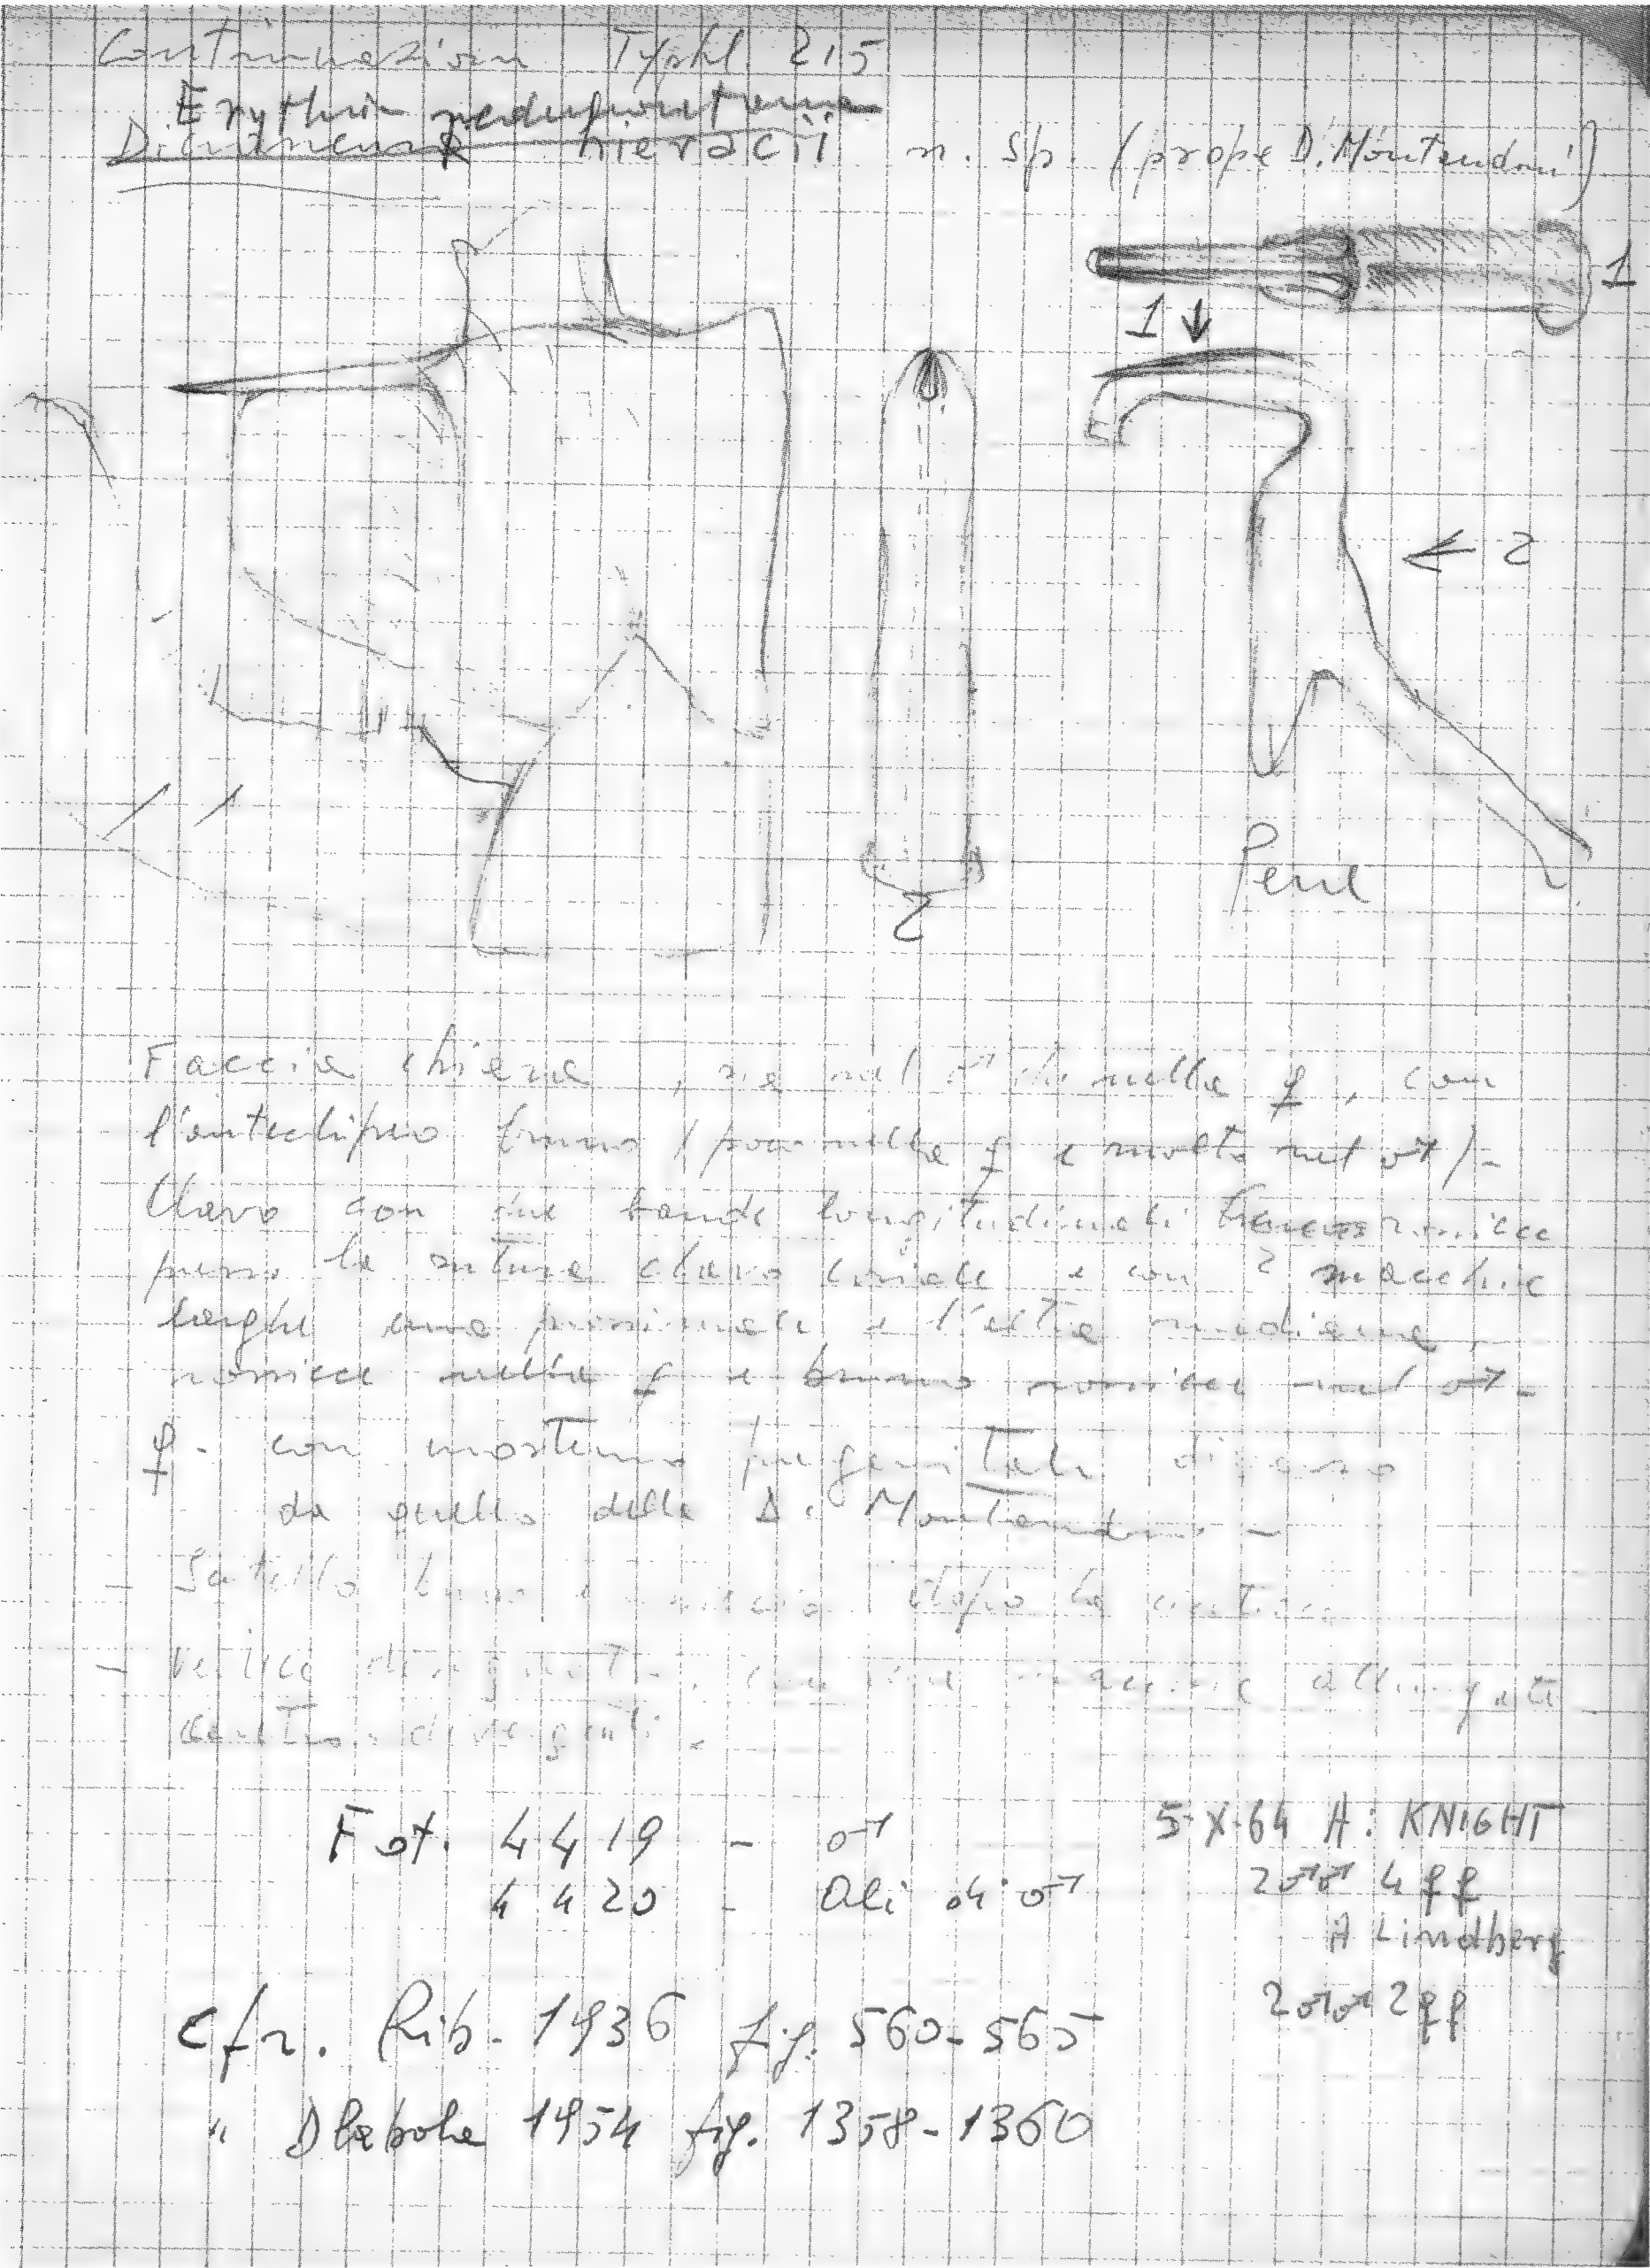 Continuazione Typhl 215
Dicraneura hieracii n. sp. (prope D. Montandoni)
1
1
2
2
Peni
Faccia chiara, sia nel ♂ che nella ♀, con
l'anteclipeo bruno (poco nella ♀ e molto nel ♂)-
Clavo con due bande longitudinali
presso la sutura clavo coriale e con 2 macchie
larghe una prossimale e l'altra mediana,
rossicce nella ♀ e bruno rossicce nel ♂-
♀- con sterno pregenitale diverso
da quello della D. Montandoni -
- dopo la
- Vertice con due macchie allungate
divergenti -
Fot. 4419 - ♂
4420 - Ali di ♂
5-X-64 A: KNIGHT
2♂♂ 4♀♀
A Lindberg
2♂♂ 2♀♀
cfr. Rib- 1936 fig. 560-565
" Dlabola 1954 fig. 1358-1360